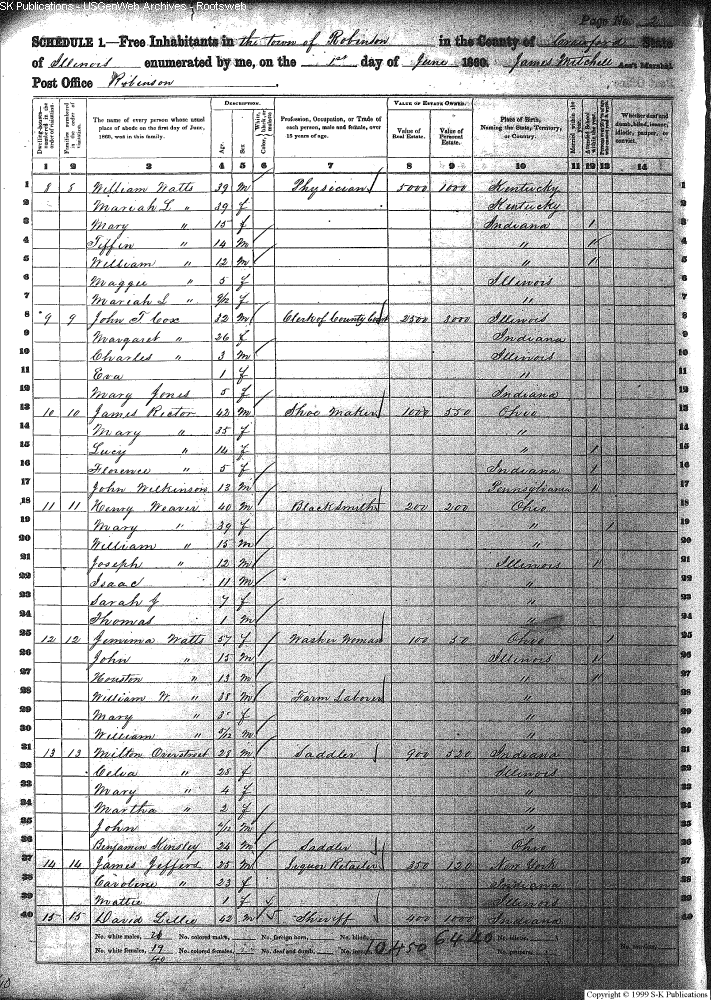 SK Publications - USGenWeb Archives - Rootsweb
Page No. 2
SCHEDULE 1.—Free Inhabitants in the town of Robinson in the County of Crawford State
of Illinois enumerated by me, on the 1st day of June 1860. James Mitchell Ass't Marshal
Post Office Robinson.
DESCRIPTION. VALUE OF ESTATE OWNED.
Dwelling-houses—numbered in the order of visitation. Families numbered in the order of visitation. The name of every person whose usual place of abode on the first day of June, 1860, was in this family. Age. Sex Color, White, black, or mulatto Profession, Occupation, or Trade of each person, male and female, over 15 years of age. Value of Real Estate. Value of Personal Estate. Place of Birth, Naming the State, Territory, or Country. Married within the year. Attended School within the year. Whether deaf and dumb, blind, insane, idiotic, pauper, or convict.
1 2 3 4 5 6 7 8 9 10 11 12 13 14
1 8 8 William Watts 39 m / Physician 5000 1000 Kentucky 1
2 Mariah L " 39 f Kentucky 2
3 Mary " 15 f Indiana 1 3
4 Tiffin " 14 m / " 1 4
5 William " 12 m / " 1 5
6 Maggie " 5 f Illinois 6
7 Mariah L " 9/12 f " 7
8 9 9 John T Cox 32 m / Clerk of County Court 2500 3000 Illinois 8
9 Margaret " 26 f Indiana 9
10 Charles " 3 m / Illinois 10
11 Eva 1 f " 11
12 Mary Jones 5 f Indiana 12
13 10 10 James Rector 42 m Shoe maker 1000 550 Ohio 13
14 Mary " 35 f " 14
15 Lucy " 14 f " 1 15
16 Florence " 5 f / Indiana 1 16
17 John Wilkinson 13 m / Pennsylvania 1 17
18 11 11 Henry Weaver 40 m / Blacksmith 200 200 Ohio 18
19 Mary " 39 f " 1 19
20 William " 15 m / " 20
21 Joseph " 12 m / Illinois 1 21
22 Isaac 11 m / " 22
23 Sarah J 7 f " 23
24 Thomas 1 m / " 24
25 12 12 Jemima Watts 57 f Washer Woman 100 50 Ohio 1 25
26 John " 15 m / Illinois 1 26
27 Houston " 13 m / " 1 27
28 William W. " 38 m / Farm Laborer " 28
29 Mary " f " 29
30 William " m / " 30
31 13 13 Milton Overstreet 28 m / Saddler 900 520 Indiana 31
32 Celva " 25 f Illinois 32
33 Mary " 4 f " 33
34 Martha " 2 f " 34
35 John m / " 35
36 Benjamin Kinsley 24 m / Saddler Ohio 36
37 14 14 James Jeffers 25 m / Liquor Retailer 350 120 New York 37
38 Caroline " 23 f Indiana 38
39 Mattie 1 f Illinois 39
40 15 15 David Lillie 42 m / Sheriff 400 1000 Indiana 40
No. white males, No. colored males, No. foreign born, No. blind,
No. white females, 19 No. colored females, No. deaf and dumb, 10450 6440
40
Copyright © 1999 S-K Publications